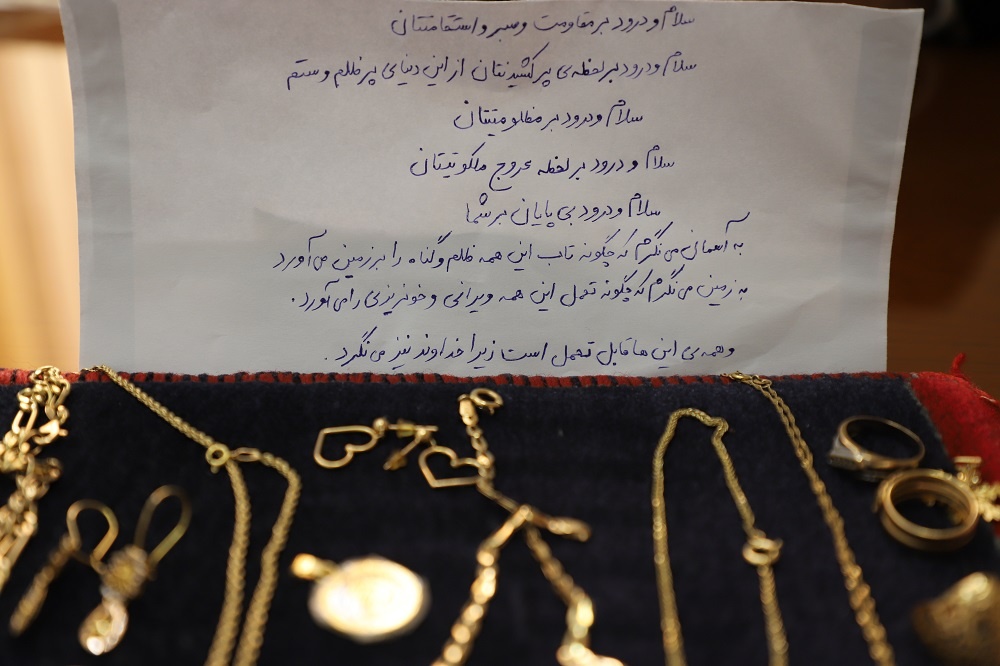 سلام و درود بر مقاومت و صبر و استقامتتان
سلام و درود بر لحظه‌ی پر کشیدنتان از این دنیای پر ظلم و ستم
سلام و درود بر مظلومیتتان
سلام و درود بر لحظه عروج ملکوتیتان
سلام و درود بی پایان بر شما
به آسمان می نگرم که چگونه تاب این همه ظلم و گناه را بر زمین می آورد
به زمین می نگرم که چگونه تحمل این همه ویرانی و خونریزی را می آورد.
و همه ی این ها قابل تحمل است زیرا خداوند نیز می نگرد.